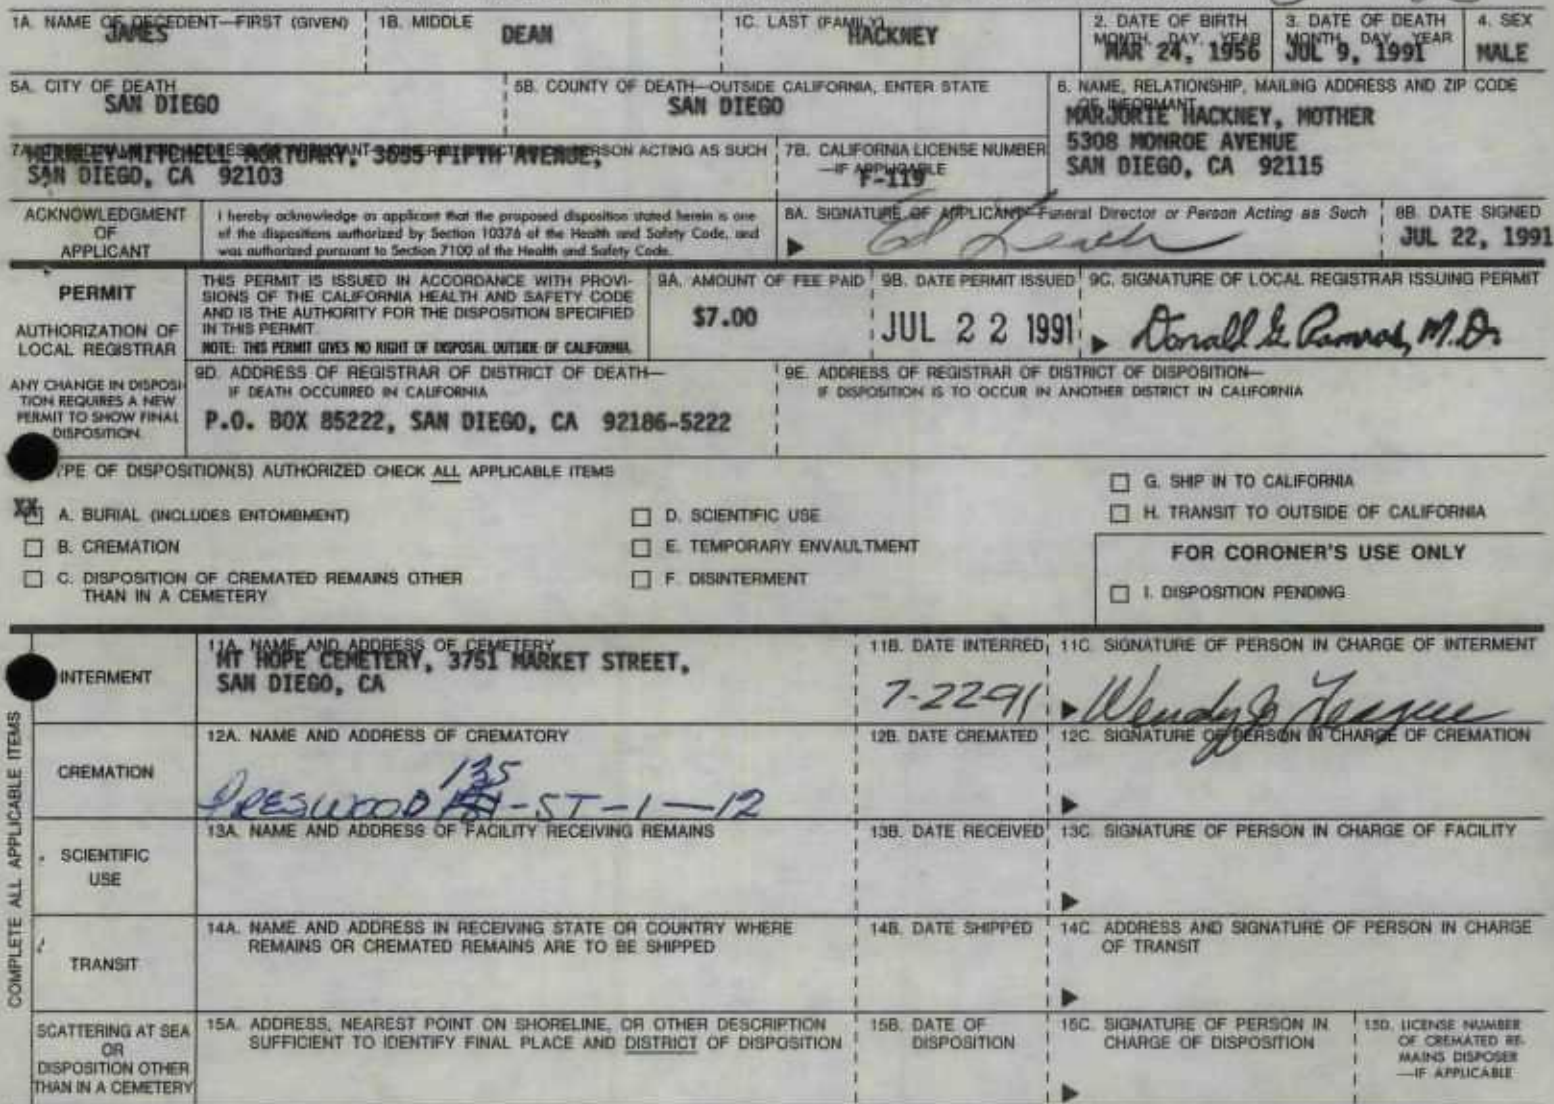 1A. NAME OF DECEDENT—FIRST (GIVEN) 1B. MIDDLE 1C. LAST (FAMILY) 2. DATE OF BIRTH 3. DATE OF DEATH 4. SEX
MONTH, DAY, YEAR MONTH, DAY, YEAR
JAMES DEAN HACKNEY MAR 24, 1956 JUL 9, 1991 MALE
5A. CITY OF DEATH 5B. COUNTY OF DEATH—OUTSIDE CALIFORNIA, ENTER STATE 6. NAME, RELATIONSHIP, MAILING ADDRESS AND ZIP CODE
OF INFORMANT
SAN DIEGO SAN DIEGO
MARJORIE HACKNEY, MOTHER
5308 MONROE AVENUE
SAN DIEGO, CA 92115
PERSON ACTING AS SUCH 7B. CALIFORNIA LICENSE NUMBER
—IF APPLICABLE
MORTUARY, 3655 FIFTH AVENUE,
SAN DIEGO, CA 92103 F-119
ACKNOWLEDGMENT
OF
APPLICANT
I hereby acknowledge as applicant that the proposed disposition stated herein is one
of the dispositions authorized by Section 10376 of the Health and Safety Code, and
was authorized pursuant to Section 7100 of the Health and Safety Code.
8A. SIGNATURE OF APPLICANT—Funeral Director or Person Acting as Such 8B. DATE SIGNED
Ed Leach JUL 22, 1991
PERMIT
AUTHORIZATION OF
LOCAL REGISTRAR
THIS PERMIT IS ISSUED IN ACCORDANCE WITH PROVI-
SIONS OF THE CALIFORNIA HEALTH AND SAFETY CODE
AND IS THE AUTHORITY FOR THE DISPOSITION SPECIFIED
IN THIS PERMIT.
NOTE: THIS PERMIT GIVES NO RIGHT OF DISPOSAL OUTSIDE OF CALIFORNIA.
9A. AMOUNT OF FEE PAID 9B. DATE PERMIT ISSUED 9C. SIGNATURE OF LOCAL REGISTRAR ISSUING PERMIT
$7.00 JUL 22 1991 Donald G. Ramras, M.D.
ANY CHANGE IN DISPOSI-
TION REQUIRES A NEW
PERMIT TO SHOW FINAL
DISPOSITION.
9D. ADDRESS OF REGISTRAR OF DISTRICT OF DEATH—
IF DEATH OCCURRED IN CALIFORNIA
P.O. BOX 85222, SAN DIEGO, CA 92186-5222
9E. ADDRESS OF REGISTRAR OF DISTRICT OF DISPOSITION—
IF DISPOSITION IS TO OCCUR IN ANOTHER DISTRICT IN CALIFORNIA
YPE OF DISPOSITION(S) AUTHORIZED CHECK ALL APPLICABLE ITEMS
XX A. BURIAL (INCLUDES ENTOMBMENT)
B. CREMATION
C. DISPOSITION OF CREMATED REMAINS OTHER
THAN IN A CEMETERY
D. SCIENTIFIC USE
E. TEMPORARY ENVAULTMENT
F. DISINTERMENT
G. SHIP IN TO CALIFORNIA
H. TRANSIT TO OUTSIDE OF CALIFORNIA
FOR CORONER'S USE ONLY
I. DISPOSITION PENDING
COMPLETE ALL APPLICABLE ITEMS
INTERMENT
11A. NAME AND ADDRESS OF CEMETERY
MT HOPE CEMETERY, 3751 MARKET STREET,
SAN DIEGO, CA
11B. DATE INTERRED
7-22-91
11C. SIGNATURE OF PERSON IN CHARGE OF INTERMENT
Wendy J League
CREMATION
12A. NAME AND ADDRESS OF CREMATORY
135
-ST-1—12
12B. DATE CREMATED
12C. SIGNATURE OF PERSON IN CHARGE OF CREMATION
SCIENTIFIC
USE
13A. NAME AND ADDRESS OF FACILITY RECEIVING REMAINS
13B. DATE RECEIVED
13C. SIGNATURE OF PERSON IN CHARGE OF FACILITY
TRANSIT
14A. NAME AND ADDRESS IN RECEIVING STATE OR COUNTRY WHERE
REMAINS OR CREMATED REMAINS ARE TO BE SHIPPED
14B. DATE SHIPPED
14C. ADDRESS AND SIGNATURE OF PERSON IN CHARGE
OF TRANSIT
SCATTERING AT SEA
OR
DISPOSITION OTHER
THAN IN A CEMETERY
15A. ADDRESS, NEAREST POINT ON SHORELINE, OR OTHER DESCRIPTION
SUFFICIENT TO IDENTIFY FINAL PLACE AND DISTRICT OF DISPOSITION
15B. DATE OF
DISPOSITION
15C. SIGNATURE OF PERSON IN
CHARGE OF DISPOSITION
15D. LICENSE NUMBER
OF CREMATED RE-
MAINS DISPOSER
—IF APPLICABLE